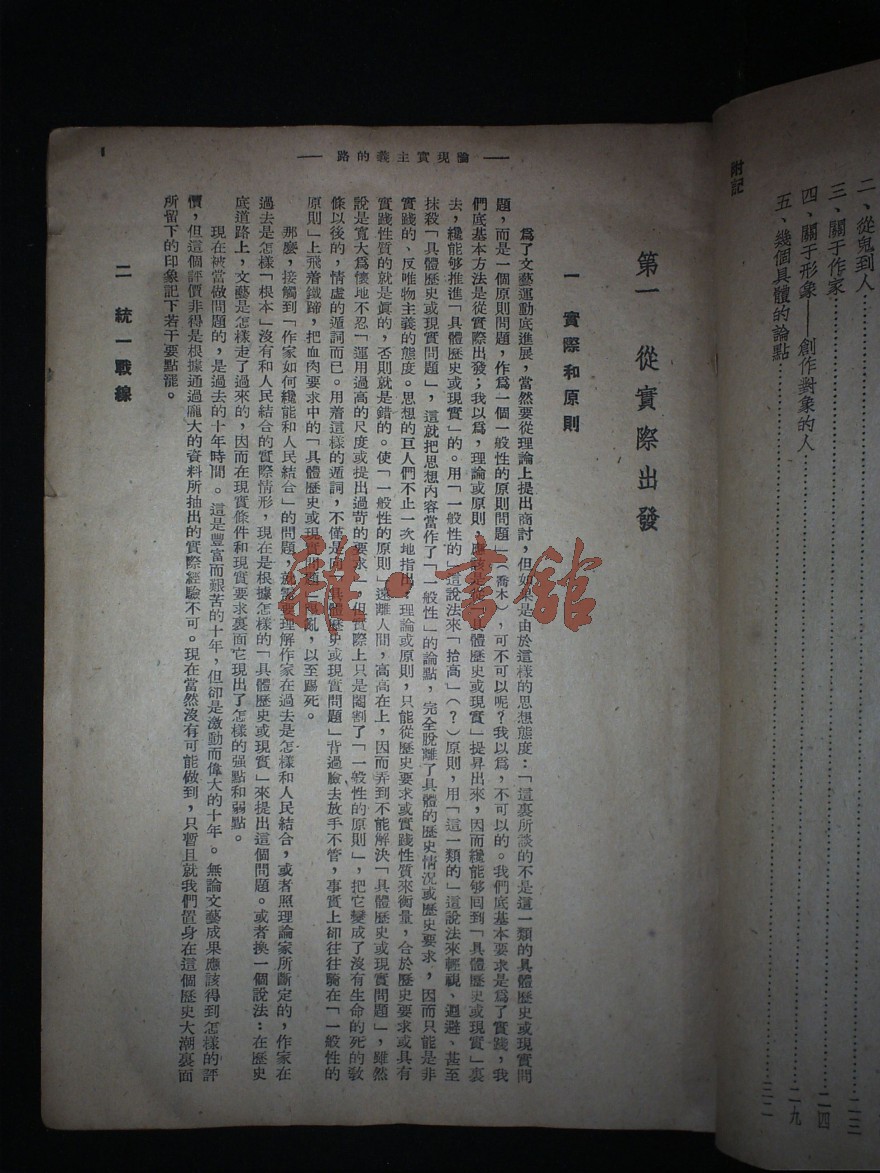 二、從鬼到人……二三
三、關于作家……二四
四、關于形象——創作對象的人……二九
五、幾個具體的論點……三二
附記
——論現實主義的路——
1
第一 從實際出發
一 實際和原則
爲了文藝運動底進展，當然要從理論上提出商討，但如果是由於這樣的思想態度：「這裏所談的不是這一類的具體歷史或現實問
題，而是一個原則問題，作爲一個一般性的原則問題」（喬木），可不可以呢？我以爲，不可以的。我們底基本要求是爲了實踐，我
們底基本方法是從實際出發；我以爲，理論或原則，應該是從「具體歷史或現實」提昇出來，因而纔能够回到「具體歷史或現實」裏
去，纔能够推進「具體歷史或現實」的。用「一般性的」這說法來「抬高」（？）原則，用「這一類的」這說法來輕視、迴避、甚至
抹殺「具體歷史或現實問題」，這就把思想內容當作了「一般性」的論點，完全脫離了具體的歷史情況或歷史要求，因而只能是非
實踐的、反唯物主義的態度。思想的巨人們不止一次地指出：理論或原則，只能從歷史要求或實踐性質來衡量，合於歷史要求或具有
實踐性質的就是眞的，否則就是錯的。使「一般性的原則」遠離人間，高高在上，因而弄到不能解決「具體歷史或現實問題」，雖然
說是寬大爲懷地不忍「運用過高的尺度或提出過苛的要求」，但實際上只是閹割了「一般性的原則」，把它變成了沒有生命的死的敎
條以後的，情虛的遁詞而已。用着這樣的遁詞，不僅是向「具體歷史或現實問題」背過臉去放手不管，事實上卻往往騎在「一般性的
原則」上飛着鐵蹄，把血肉要求中的「具體歷史或現實問題」亂，以至踢死。
那麼，接觸到「作家如何纔能和人民結合」的問題，就需要理解作家在過去是怎樣和人民結合，或者照理論家所斷定的，作家在
過去是怎樣「根本」沒有和人民結合的實際情形，現在是根據怎樣的「具體歷史或現實」來提出這個問題。或者換一個說法：在歷史
底道路上，文藝是怎樣走了過來的，因而在現實條件和現實要求裏面它現出了怎樣的强點和弱點。
現在被當做問題的，是過去的十年時間。這是豐富而艱苦的十年，但卻是激動而偉大的十年。無論文藝成果應該得到怎樣的評
價，但這個評價非得是根據通過龐大的資料所抽出的實際經驗不可。現在當然沒有可能做到，只暫且就我們置身在這個歷史大潮裏面
所留下的印象記下若干要點罷。
二 統一戰線
雜·書館